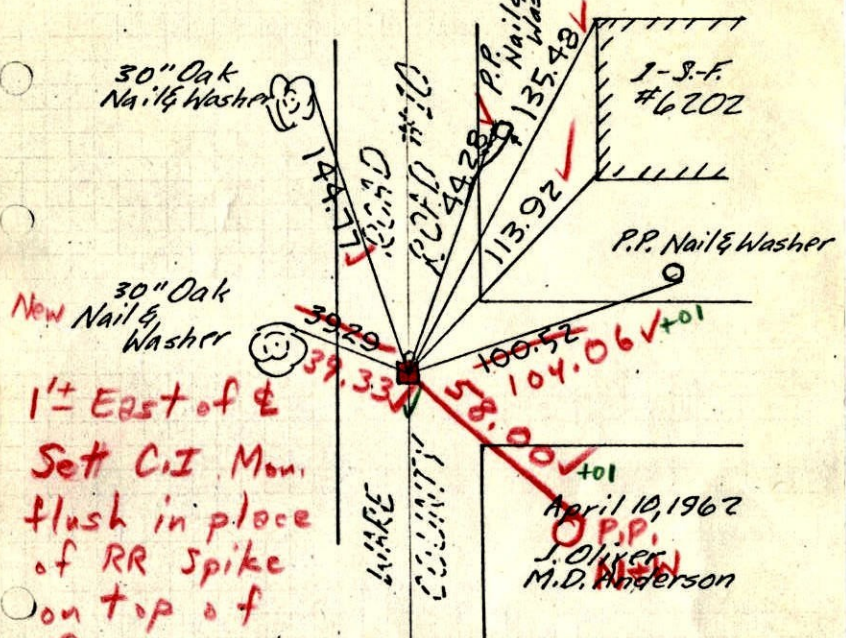 30" Oak
Nail & Washer
144.77
ROAD
ROAD #10
44.28
P.P.
Nail &
135.48
1-S-F.
#6202
113.92
P.P. Nail & Washer
New
30" Oak
Nail &
Washer
3929
39.33
100.52
104.06 +01
58.00 +01
1'± East of ℄
Sett C.I. Mon.
flush in place
of RR spike
on top of
COUNTY
April 10, 1962
P.P.
J. Oliver
N+W
M.D. Anderson